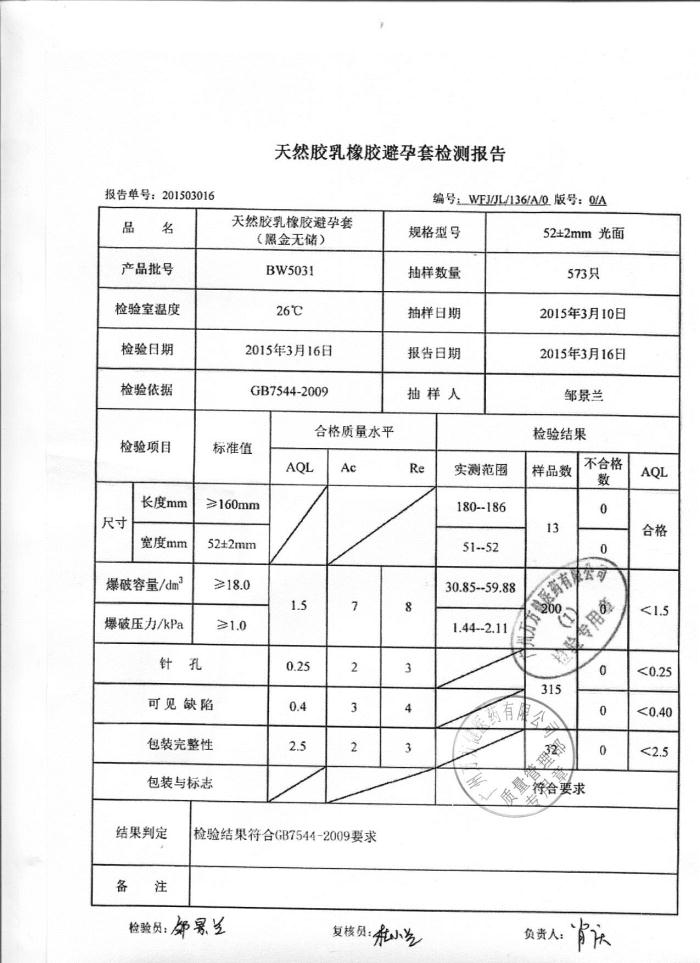 天然胶乳橡胶避孕套检测报告
报告单号：201503016 编号：WFJ/JL/136/A/0 版号：0/A
品 名 天然胶乳橡胶避孕套 规格型号 52±2mm 光面
（黑金无储）
产品批号 BW5031 抽样数量 573只
检验室温度 26℃ 抽样日期 2015年3月10日
检验日期 2015年3月16日 报告日期 2015年3月16日
检验依据 GB7544-2009 抽 样 人 邹景兰
检验项目 标准值 合格质量水平 检验结果
AQL Ac Re 实测范围 样品数 不合格数 AQL
尺寸 长度mm ≥160mm 180--186 13 0 合格
宽度mm 52±2mm 51--52 0
爆破容量/dm³ ≥18.0 1.5 7 8 30.85--59.88 200 0 <1.5
爆破压力/kPa ≥1.0 1.44--2.11
针 孔 0.25 2 3 315 0 <0.25
可见缺陷 0.4 3 4 0 <0.40
包装完整性 2.5 2 3 32 0 <2.5
包装与标志 符合要求
结果判定 检验结果符合GB7544-2009要求
备 注
检验员：邹景兰 复核员：杜小兰 负责人：
医药有限公司
(1)
检验专用章
医药有限公司
质量管理部
专用章